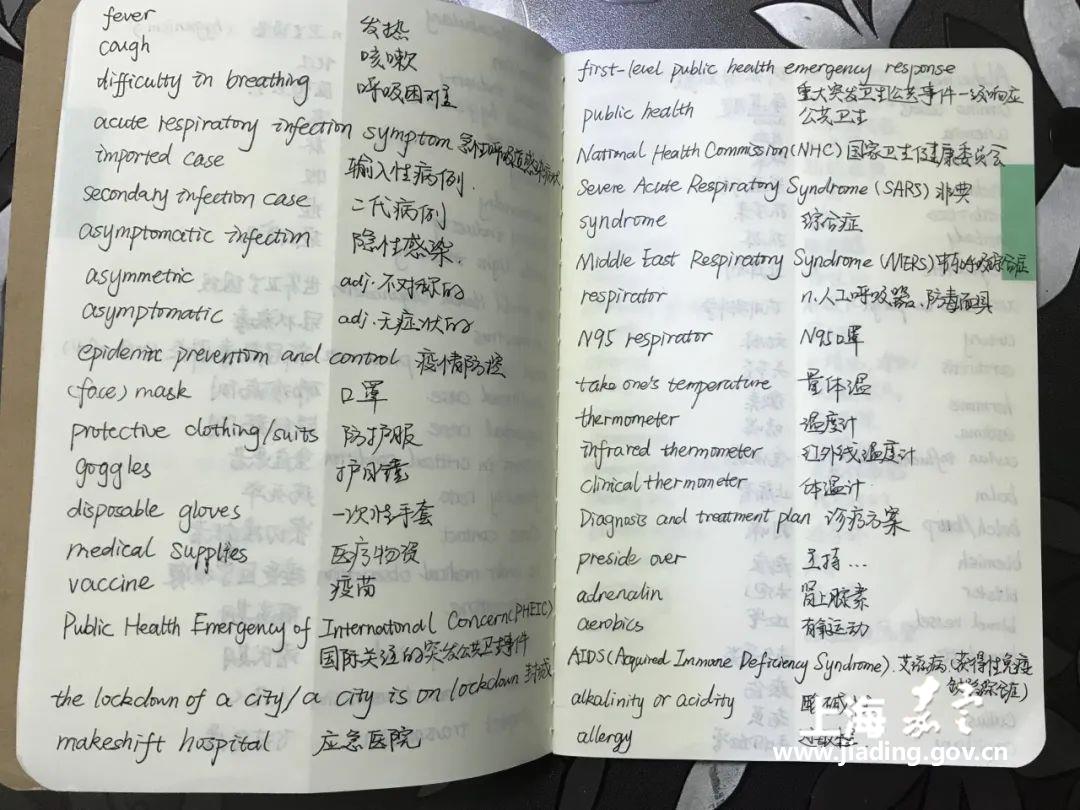 fever 发热
cough 咳嗽
difficulty in breathing 呼吸困难
acute respiratory infection symptom 急性呼吸道感染病状
imported case 输入性病例.
secondary infection case 二代病例
asymptomatic infection 隐性感染.
asymmetric adj. 不对称的
asymptomatic adj. 无症状的
epidemic prevention and control 疫情防控
(face) mask 口罩
protective clothing/suits 防护服
goggles 护目镜
disposable gloves 一次性手套
medical supplies 医疗物资
vaccine 疫苗
Public Health Emergency of International Concern(PHEIC)
国际关注的突发公共卫生事件
the lockdown of a city/a city is on lockdown 封城
makeshift hospital 应急医院
first-level public health emergency response
重大突发卫生公共事件一级响应
public health 公共卫生
National Health Commission(NHC) 国家卫生健康委员会
Severe Acute Respiratory Syndrome (SARS) 非典
syndrome 综合症
Middle East Respiratory Syndrome (MERS) 中东呼吸综合症
respirator n.人工呼吸器、防毒面具
N95 respirator N95口罩
take one's temperature 量体温
thermometer 温度计
infrared thermometer 红外线温度计
clinical thermometer 体温计
Diagnosis and treatment plan 诊疗方案
preside over 主持…
adrenalin 肾上腺素
aerobics 有氧运动
AIDS(Acquired Immune Deficiency Syndrome). 艾滋病(获得性免疫
缺陷综合症)
alkalinity or acidity 酸碱
allergy
上海嘉定
www.jiading.gov.cn